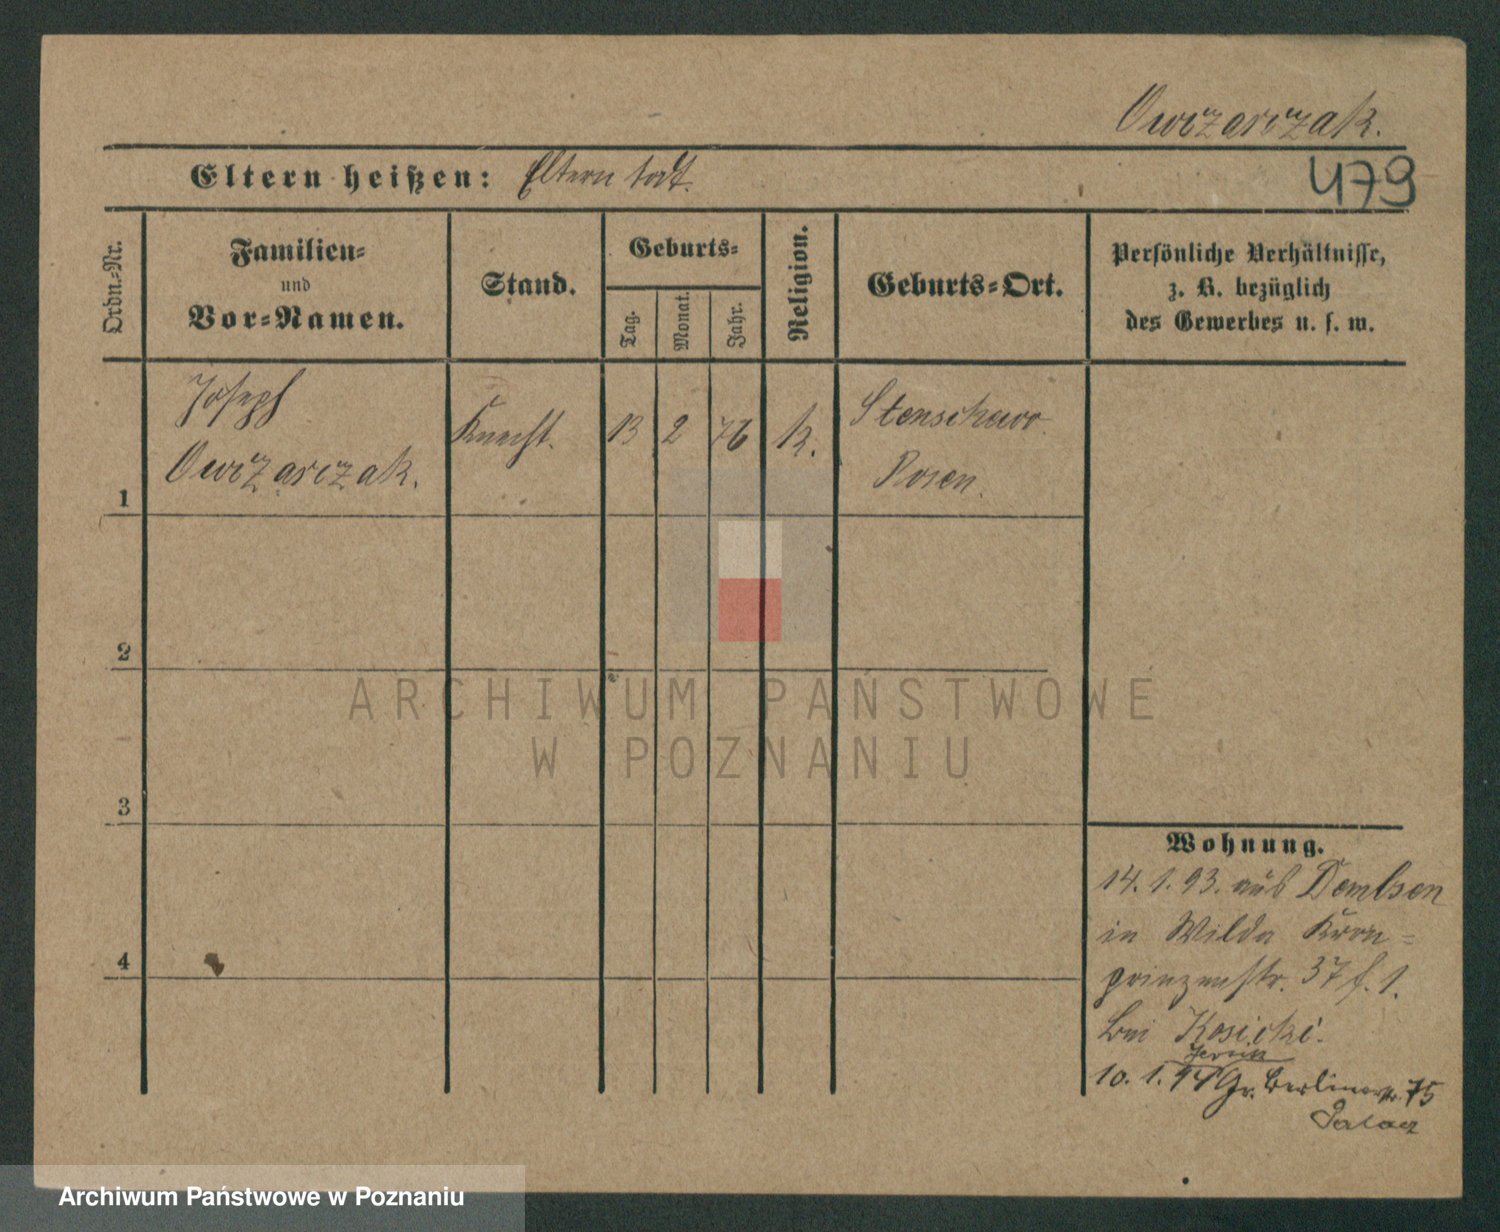 Owczarczak.
Eltern heißen: Eltern todt.
479
Ordn.-Nr.
Familien-
und
Vor-Namen.
Stand.
Geburts-
Tag.
Monat.
Jahr.
Religion.
Geburts-Ort.
Persönliche Verhältnisse,
z. B. bezüglich
des Gewerbes u. s. w.
1
Joseph
Owczarczak.
Knecht.
13
2
76
k.
Stenschewo
Posen.
2
3
4
ARCHIWUM PAŃSTWOWE
W POZNANIU
Wohnung.
14. 1. 93. aus Dembsen
in Wilda Kron-
prinzenstr. 37 f. 1.
bei Kosicki.
Jersitz
10. 1. 94 Gr. Berlinerstr. 75
Archiwum Państwowe w Poznaniu